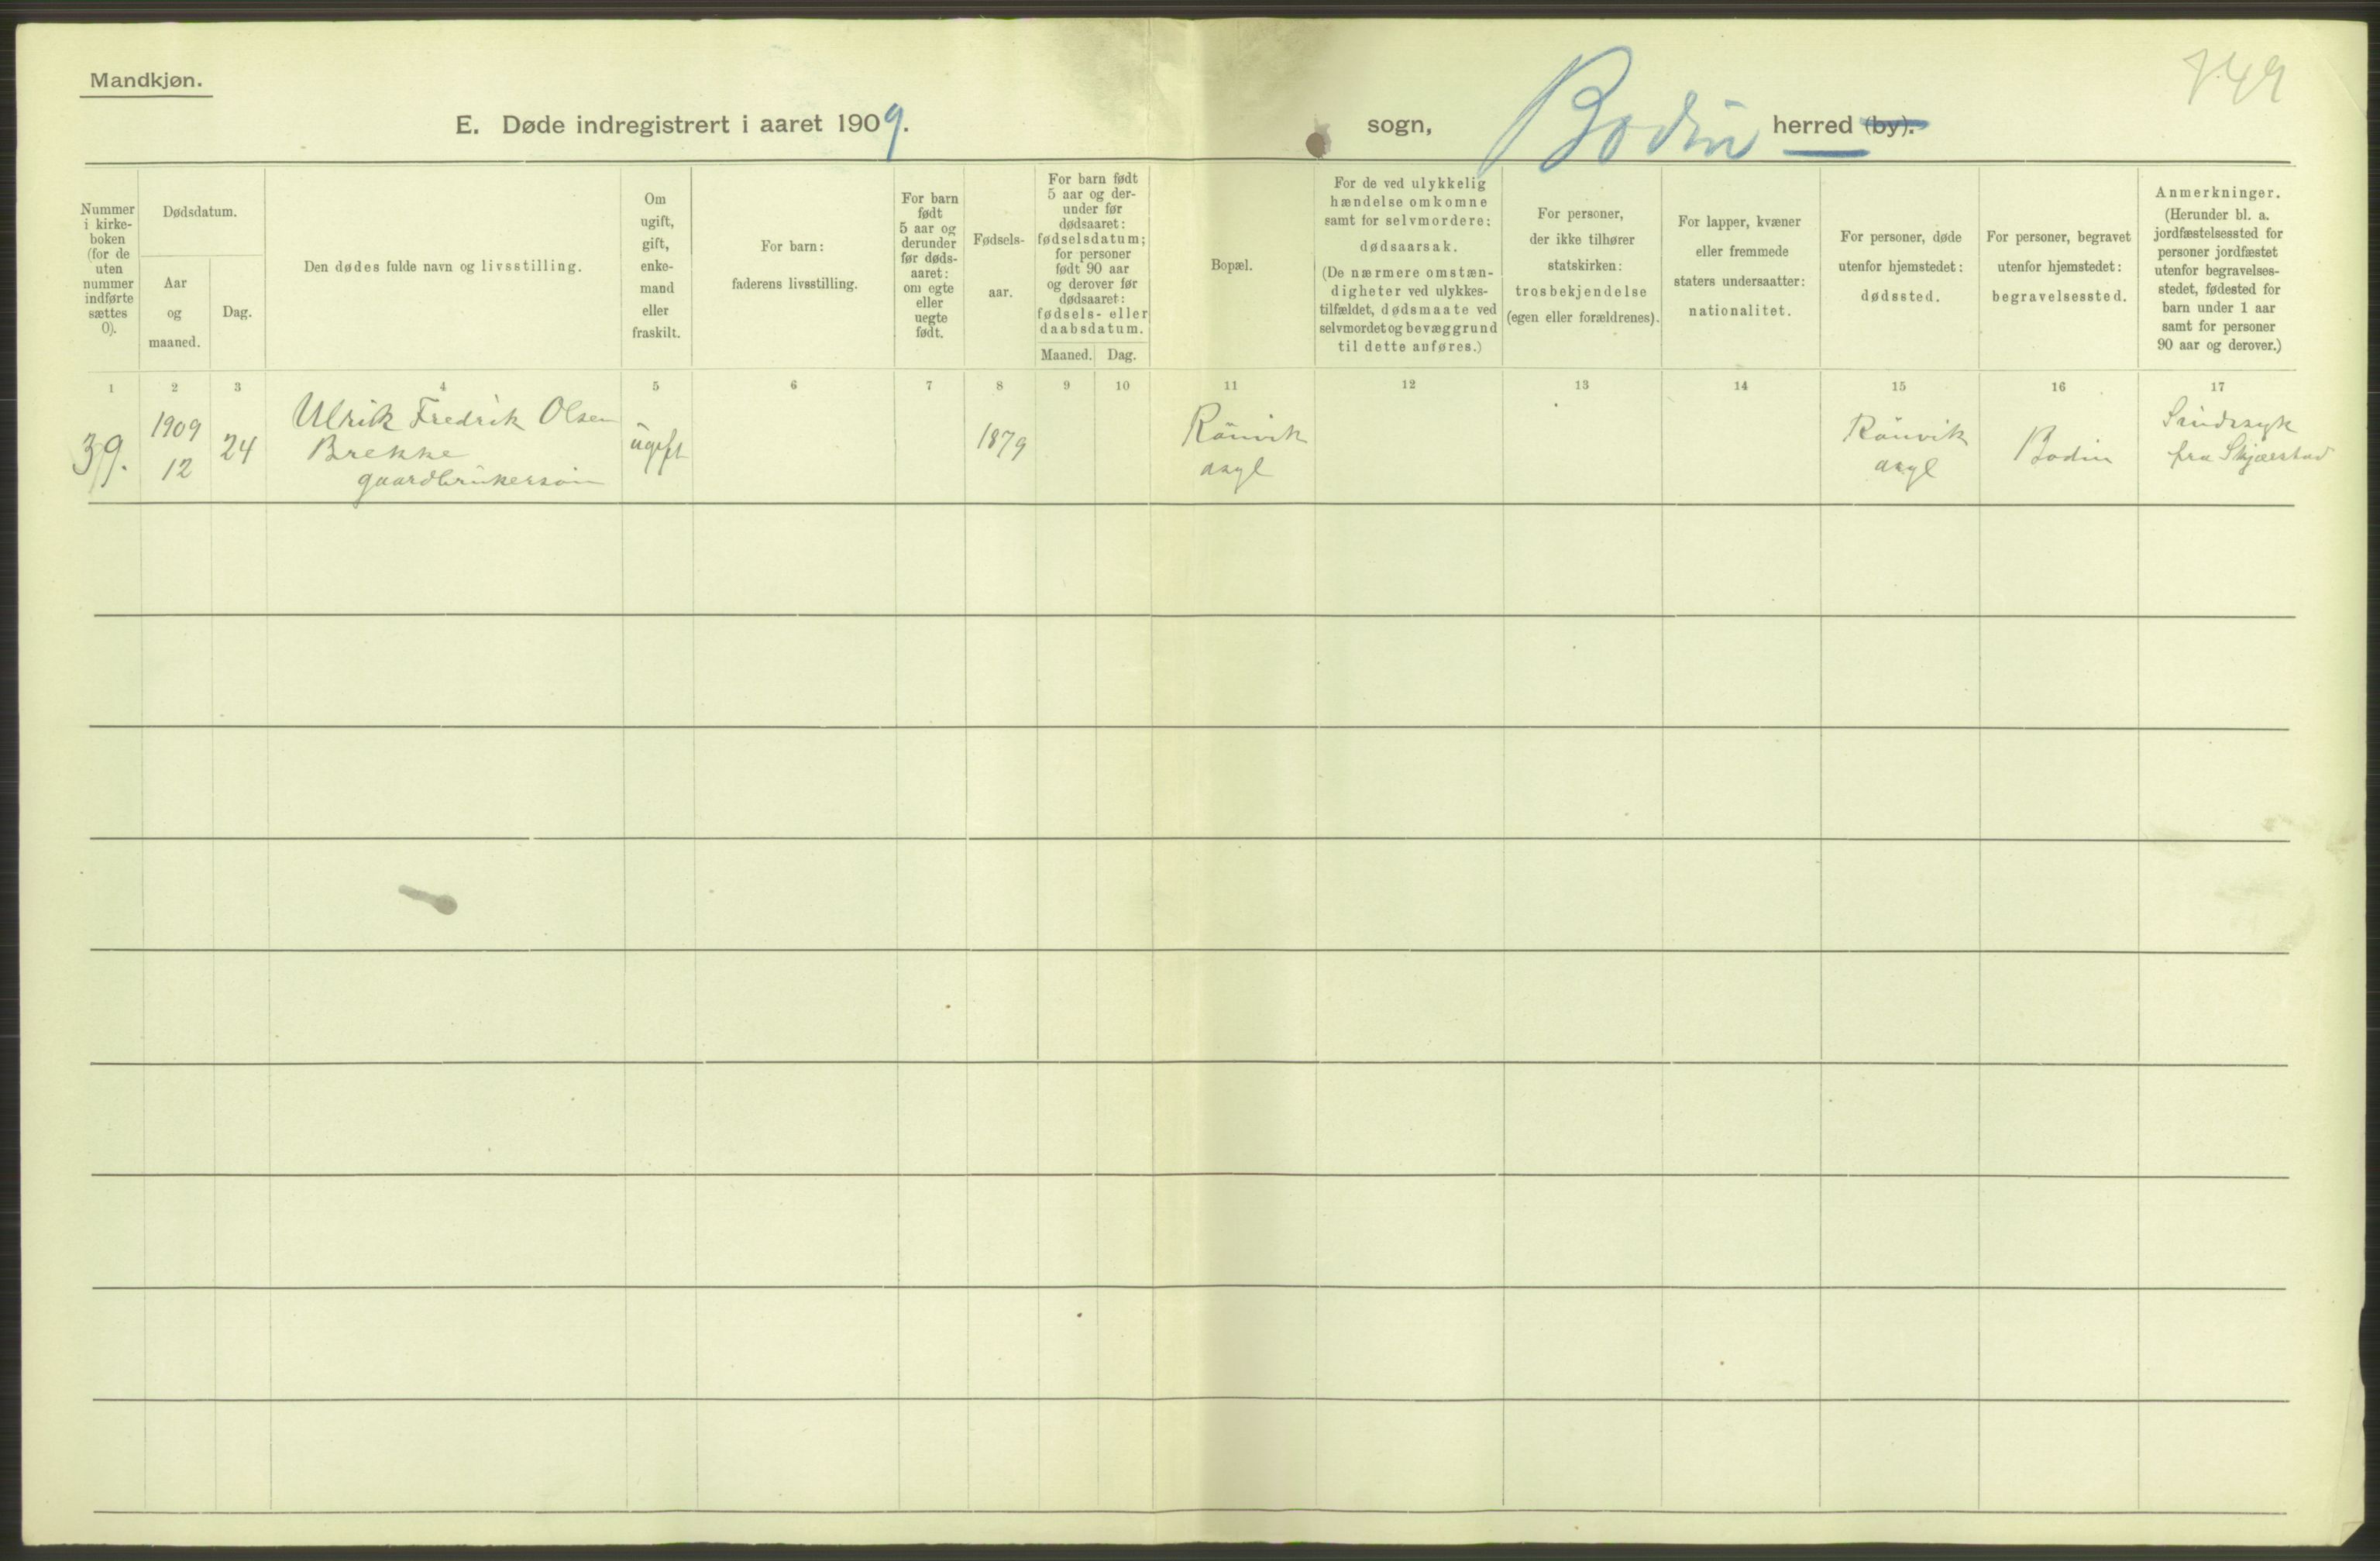 Mandkjøn.
749
E. Døde indregistrert i aaret 1909.
sogn, Bodin herred (by).
Nummer
i kirke-
boken
(for de
uten
nummer
indførte
sættes
0).
Dødsdatum.
Aar
og
maaned.
Dag.
Den dødes fulde navn og livsstilling.
Om
ugift,
gift,
enke-
mand
eller
fraskilt.
For barn:
faderens livsstilling.
For barn
født
5 aar og
derunder
før døds-
aaret:
om egte
eller
uegte
født.
Fødsels-
aar.
For barn født
5 aar og der-
under før
dødsaaret:
fødselsdatum;
for personer
født 90 aar
og derover før
dødsaaret:
fødsels- eller
daabsdatum.
Maaned.
Dag.
Bopæl.
For de ved ulykkelig
hændelse omkomne
samt for selvmordere:
dødsaarsak.
(De nærmere omstæn-
digheter ved ulykkes-
tilfældet, dødsmaate ved
selvmordet og bevæggrund
til dette anføres.)
For personer,
der ikke tilhører
statskirken:
trosbekjendelse
(egen eller forældrenes).
For lapper, kvæner
eller fremmede
staters undersaatter:
nationalitet.
For personer, døde
utenfor hjemstedet:
dødssted.
For personer, begravet
utenfor hjemstedet:
begravelsessted.
Anmerkninger.
(Herunder bl. a.
jordfæstelsessted for
personer jordfæstet
utenfor begravelses-
stedet, fødested for
barn under 1 aar
samt for personer
90 aar og derover.)
1 2 3 4 5 6 7 8 9 10 11 12 13 14 15 16 17
39.
1909
12
24
Ulrik Fredrik Olsen
Brekke
gaardbrukersøn
ugift
1879
Rønvik
asyl
Rønvik
asyl
Bodin
Sindssyk
fra Skjærstad